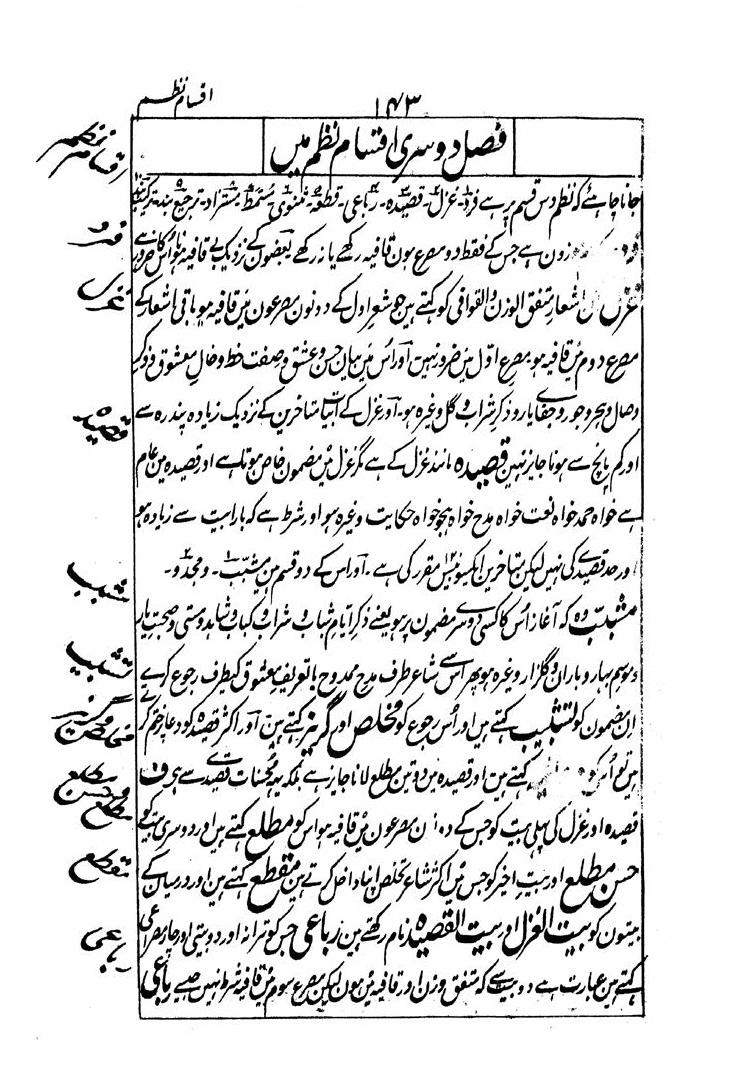 اقسام نظم
۱۴۳
فصل دوسری اقسام نظم میں
اقسام نظم
جانا چاہئے کہ نظم دس قسم پر ہے فرد۔ غزل۔ قصیدہ۔ رباعی۔ قطعہ۔ مثنوی۔ مسمط۔ مستزاد۔ ترجیع بند۔ ترکیب بند
فرد
وزون ہے جس کے فقط دو مصرع ہون قافیہ رکھے یا نہ رکھے بعضون کے نزدیک بے قافیہ ہونا اُس کا ضرور ہے
غزل
غزل اُن اشعار متفق الوزن والقوافی کو کہتے ہین جو شعر اول کے دونون مصرعون مین قافیہ ہو باقی اشعار کے
مصرع دوم مین قافیہ ہو مصرع اوّل مین ضرور نہین اور اُس مین بیان حسن و عشق و صفت خط و خال معشوق و ذکر
وصال و ہجر و جور و جفاے یار و ذکر شراب و گل وغیرہ ہو۔ اور غزل کے ابیات متاخرین کے نزدیک زیادہ پندرہ سے
قصیدہ
اور کم پانچ سے ہونا جایز نہین قصیدہ مانند غزل کے ہے مگر غزل مین مضمون خاص ہوتا ہے اور قصیدہ مین عام
ہے خواہ حمد خواہ نعت خواہ مدح خواہ ہجو خواہ حکایت وغیرہ ہو اور شرط ہے کہ بارا بیت سے زیادہ ہو
اور حد قصیدے کی نہین لیکن متاخرین ایکسو بیس مقرر کی ہے۔ اور اس کے دو قسم ہین مشبّب۔ و محدود۔
مشبب
مشبّب وہ کہ آغاز اُس کا کسی دوسرے مضمون پر ہو یعنے ذکر ایام شباب و شراب و کباب و شاہد و مستی و صحبت یار
تشبیب
و موسم بہار و باران و گلزار وغیرہ ہو پھر اُس سے شاعر طرف مدح ممدوح یا تعریف معشوق کیطرف رجوع کرے
مخلص و گریز
اِن مضمون کو تشبیب کہتے ہین اور اُس رجوع کو مخلص اور گریز کہتے ہین اور اکثر قصیدہ کو دعا پر ختم کرتے
ہین تو اُس کو کہتے ہین اور قصیدہ مین دو تین مطلع لانا جایز ہے بلکہ یہ محسنات قصیدے سے ہے
مطلع و حسن مطلع
قصیدہ اور غزل کی پہلی بیت کو جس کے دونون مصرعون مین قافیہ ہو اس کو مطلع کہتے ہین اور دوسری بیت کو
مقطع
حسن مطلع اور بیت اخیر کو جس مین اکثر شاعر تخلص اپنا داخل کرتے ہین مقطع کہتے ہین اور درمیان کے
رباعی
بیتون کو بیت الغزل اور بیت القصیدہ نام رکھتے ہین رباعی جس کو ترانہ اور دوبیتی اور چار مصراعی
کہتے ہین عبارت ہے دو بیت سے کہ متفق وزن اور قافیہ مین ہون لیکن مصرع سوم مین قافیہ شرط نہین جیسے رباعی